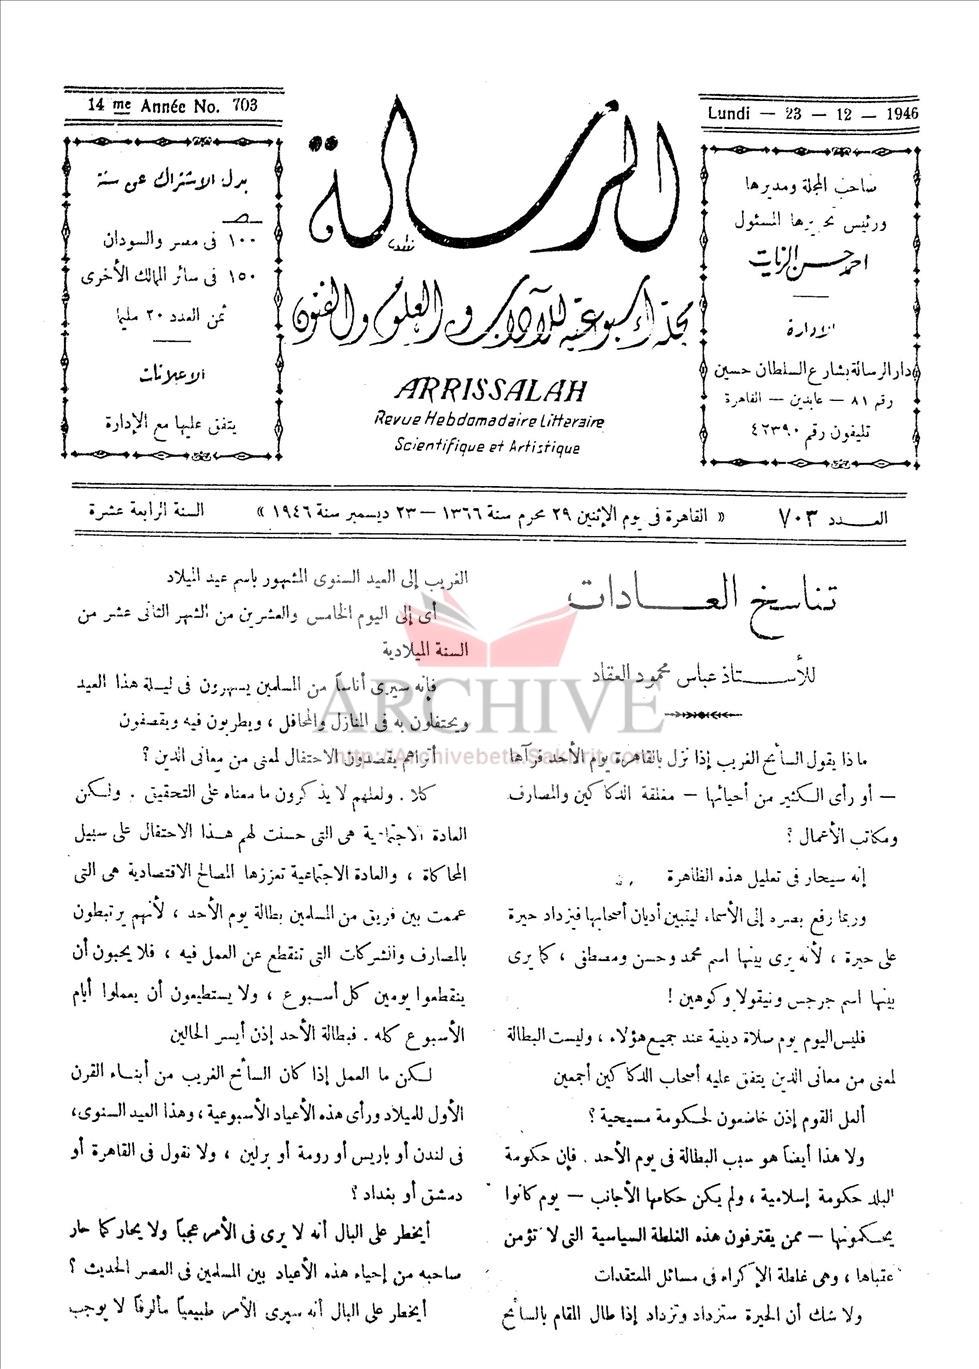 14 me Année No. 703
Lundi — 23 — 12 — 1946
الرسالة
مجلة أسبوعية للآداب والعلوم والفنون
ARRISSALAH
Revue Hebdomadaire Litteraire
Scientifique et Artistique
صاحب المجلة ومديرها
ورئيس تحريرها المسئول
احمد حسن الزيات
الادارة
دار الرسالة بشارع السلطان حسين
رقم ٨١ — عابدين — القاهرة
تليفون رقم ٤٢٣٩٠
بدل الاشتراك عن سنة
١٠٠ فى مصر والسودان
١٥٠ فى سائر الممالك الأخرى
ثمن العدد ٢٠ مليما
الاعلانات
يتفق عليها مع الإدارة
العـــدد ٧٠٣
« القاهرة فى يوم الإثنين ٢٩ محرم سنة ١٣٦٦ — ٢٣ ديسمبر سنة ١٩٤٦ »
السنة الرابعة عشرة
تناسخ العـــادات
للأســـتاذ عباس محمود العقاد
ماذا يقول السائح الغريب إذا نزل بالقاهرة يوم الأحد فرآها
— أو رأى الكثير من أحيائها — مغلقة الدكاكين والمصارف
ومكاتب الأعمال ؟
إنه سيحار فى تعليل هذه الظاهرة
وربما رفع بصره إلى الأسماء ليتبين أديان أصحابها فيزداد حيرة
على حيرة ، لأنه يرى بينها اسم محمد وحسن ومصطفى ، كما يرى
بينها اسم جرجس ونيقولا وكوهين !
فليس اليوم يوم صلاة دينية عند جميع هؤلاء ، وليست البطالة
لمعنى من معانى الدين يتفق عليه أصحاب الدكاكين أجمعين
ألعل القوم إذن خاضعون لحكومة مسيحية ؟
ولا هذا أيضاً هو سبب البطالة فى يوم الأحد . فإن حكومة
البلد حكومة إسلامية ، ولم يكن حكامها الأجانب — يوم كانوا
يحكمونها — ممن يقترفون هذه الغلطة السياسية التى لا تؤمن
عقباها ، وهى غلطة الإكراه فى مسائل المعتقدات
ولا شك أن الحيرة ستزداد وتزداد إذا طال المقام بالسائح
الغريب إلى العيد السنوى المشهور باسم عيد الميلاد
أى إلى اليوم الخامس والعشرين من الشهر الثانى عشر من
السنة الميلادية
فإنه سيرى أناساً من المسلمين يسهرون فى ليلة هذا العيد
ويحتفلون به فى المنازل والمحافل ، ويطربون فيه ويقصفون
أتراهم يقصدون الاحتفال لمعنى من معانى الدين ؟
كلا . ولعلهم لا يذكرون ما معناه على التحقيق . ولكن
العادة الاجتماعية هى التى حسنت لهم هذا الاحتفال على سبيل
المحاكاة ، والعادة الاجتماعية تعززها المصالح الاقتصادية هى التى
عممت بين فريق من المسلمين بطالة يوم الأحد ، لأنهم يرتبطون
بالمصارف والشركات التى تنقطع عن العمل فيه ، فلا يحبون أن
ينقطعوا يومين كل أسبوع ، ولا يستطيعون أن يعملوا أيام
الأسبوع كله . فبطالة الأحد إذن أيسر الحالين
لكن ما العمل إذا كان السائح الغريب من أبناء القرن
الأول للميلاد ورأى هذه الأعياد الأسبوعية ، وهذا العيد السنوى ،
فى لندن أو باريس أو رومة أو برلين ، ولا نقول فى القاهرة أو
دمشق أو بغداد ؟
أيخطر على البال أنه لا يرى فى الأمر عجباً ولا يحار كما حار
صاحبه من إحياء هذه الأعياد بين المسلمين فى العصر الحديث ؟
أيخطر على البال أنه سيرى الأمر طبيعياً مألوفاً لا يوجب
ARCHIVE
http://Archivebeta.Sakhrit.com